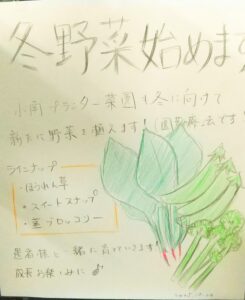 冬野菜始めます
小南プランター菜園も冬に向けて
新たに野菜を植えます!(園芸療法です!
ラインナップ
・ほうれん草
・スイートスナップ
・茎ブロッコリー
患者様と一緒に育てていきます!
成長お楽しみに♪